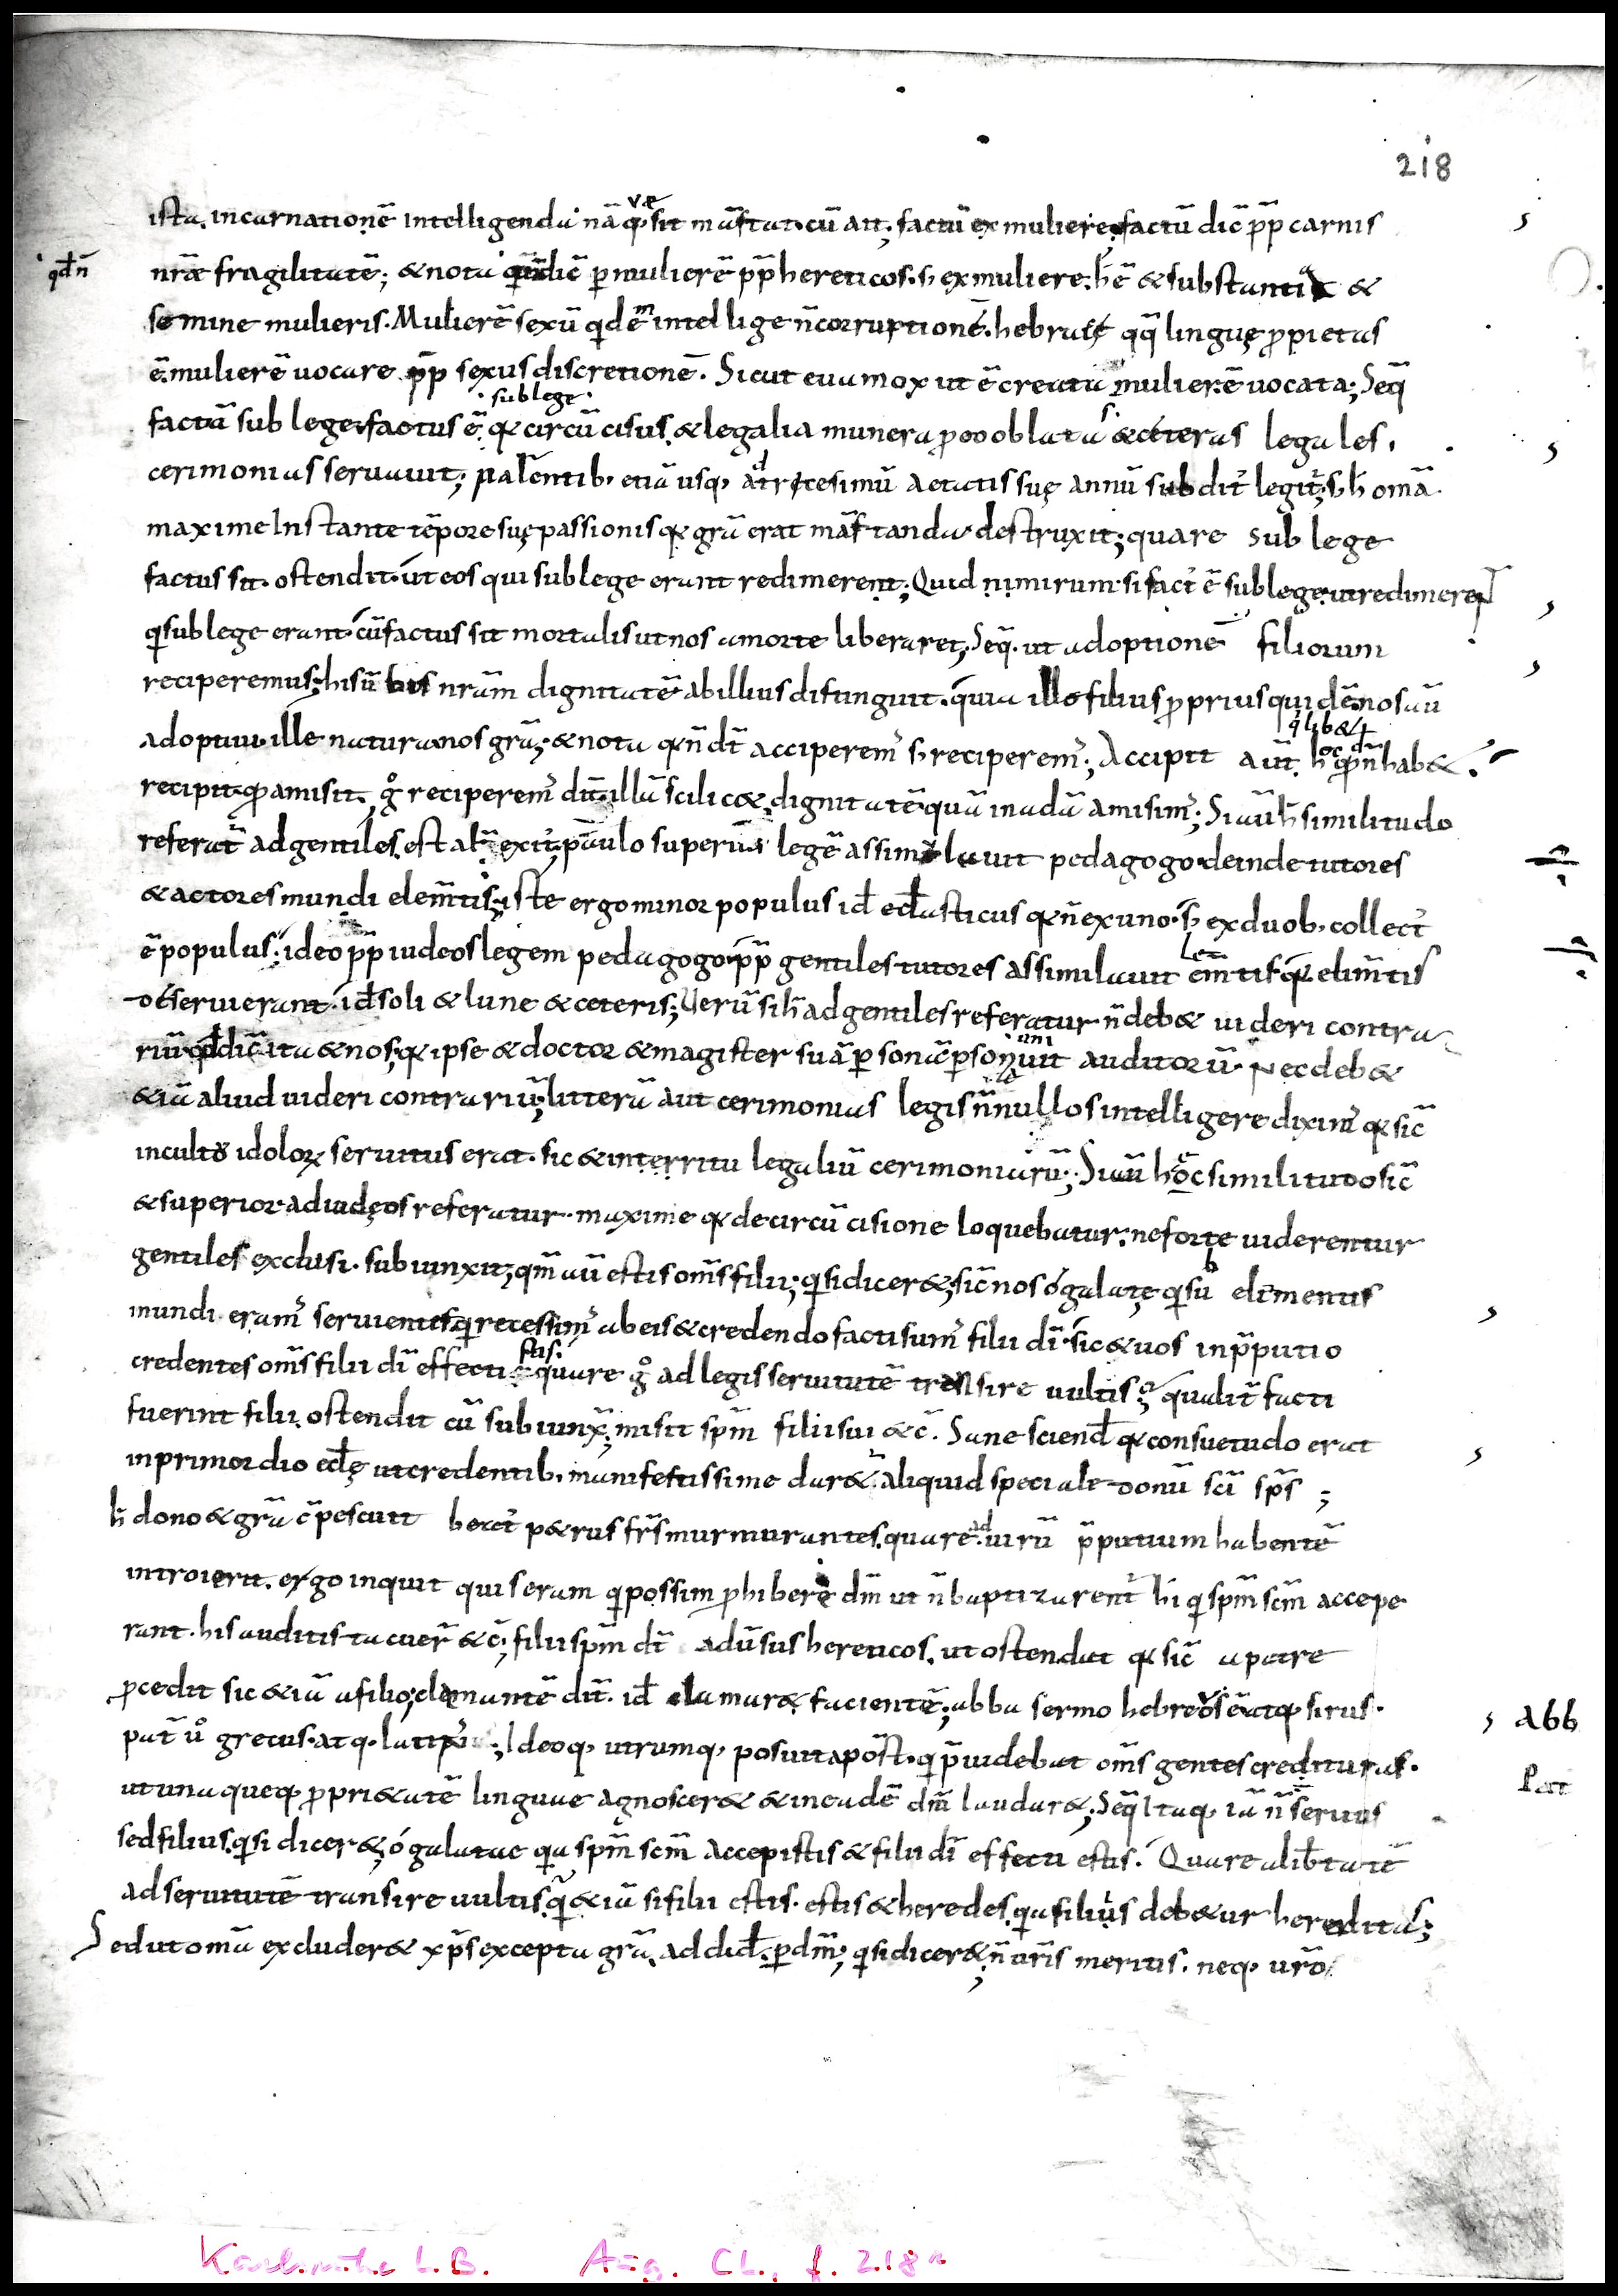 218
ista. incarnationē intelligenda nā q̨ sit māf tat. cū ait; factū ex muliere. factū dic̄ pp̄ carnis
qd̄ n̄
nrāe fragilitatē; & nota dic̄ p mulierē pp̄ hereticos. s̄ ex muliere. h̄ ē & substantia &
semine mulieris. Mulierē sexū qdē intellige n̄ corruptionē. hebraicę qq̄ linguę p̱pietas
ē. mulierē uocare pp̄ sexus discretionē. Sicut eua mox ut ē creata mulierē uocata; Seq̄
· sub lege ·
factū sub lege. factus ē. q̨ circū cisus. & legalia munera p̱ eo oblata & ceteras legales.
cerimonias seruauit; parentib. etiā usq. ad tricesimū aetatis suę annū subdit̓ legit̓; s; h̄ omā.
maxime Instante tēpore suę passionis q̨ grā erat māf tanda. destruxit; quare sub lege
factus sit. ostendit. ut eos qui sub lege erant redimerent; Quid nimirum. si fact̓ ē sub lege. ut redimerent
q̄ sub lege erant. cū factus sit mortalis ut nos a morte liberaret; Seq̄. ut adoptionē filiorum
reciperemus; his ū bis nrām dignitatē ab illius distinguit. quia ille filius p̱prius quidē. nos aū
q lib&
adoptiui. ille natura. nos grā; & nota q̨ n̄ dt̄ acciperem̓ s̄ reciperem̓; Accipit aūt. hoc qd̄ n̄ hab&.
recipit. qd̄ amisit. g̊ reciperem̓ dīt. illā scilic&. dignitatē quā in adā amisim̓; Si aū h̄ similitudo
referat̓ ad gentiles. est alt̓ exit̓. paulo superius legē assimilauit pedagogo. deinde tutores
& actores mundi elem̄tis; iste ergo minor populus id̄ eccl̄asticus q̨ n̄ ex uno. s̄ ex duob. collect̓
ē populus; ideo pp̄ iudeos legem pedagogo. pp̄ gentiles tutores assimilauit elem̄tis q̨ elim̄tis
deseruierant. id̄ soli & lune & ceteris; Uerū si h̄ ad gentiles referatur n̄ deb& uideri contra
riū qd̄ dic̄ ita & nos; q̨ ipse & doctor & magister suā p̱sonā p̱sonauit auditorū. Nec deb&
&iā aliud uideri contrariū; litterā aut cerimonias legis n̄ nullos intelligere dixim̓ q̨ sic̄
in cultu idolorꝝ seruitus erat. sic & in territu legaliū cerimoniarū; Si aū hęc similitudo sic̄
& superior ad iudęos referatur. maxime q̨ de circū cisione loquebatur. ne forte uiderentur
gentiles exclusi. subiunxit; qm̄ aū estis oms̄ filii; q̄si dicer&; sic̄ nos ó galatę q̄ sub elementis
mundi eram̓ seruientes. q̄ recessim̓ ab eis & credendo facti sum̓ filii dī. sic & uos in p̄putio
credentes oms̄ filii dī effecti estis. quare g̊ ad legis seruitutē transire uultis; qualit̓ facti
fuerint filii. ostendit cū subiunx̄; misit spm̄ filii sui & c̄. Sane sciend̄ q̨ consuetudo erat
in primordio eccl̄ę ut credentib. manifetissime dar& aliquid speciale donū scī sps̄;
h̄ dono & grā c̄pescuit beat̓ p&rus frs̄ murmurantes. quare ad uirū p̄putium habentē
introierit. ergo inquit quis eram q̄ possim p̱hibere dm̄ ut n̄ baptizarent̓ hi q̄ spm̄ scm̄ accepe
rant. his auditis tacuer̄ & c̄; filii spm̄ dt̄ adūsus hereticos. ut ostendat q̨ sic̄ a patre
p̱cedit sic &iā a filio; clamantē dīt. id̄ clamar& facientē; abba sermo hebreus ē atq. sirus.
abb
pat̄ ů grecus. atq. latin̓; Ideoq. utrumq. posuit apost̄. q̄ p̄uidebat oms̄ gentes credituras.
Pat
ut una queq. p̱pri&atē linguae agnoscer& & in eadē dm̄ laudar&; Seq̄ Itaq. iā n̄ seruus
sed filius. q̄si dicer&; ó galatae q̄a spm̄ scm̄ accepistis & filii dī effecti estis. Quare a lib̄tate
ad seruitutē transire uultis. q̄ &iā si filii estis. estis & heredes. q̄a filiis deb&ur hereditas;
Sed ut omā excluder& xp̄s excepta grā. addid̄. p̱ dm̄; q̄si dicer&; n̄ uris̄ meritis. neq. uro̅
Karlsruhe L.B. Aug. CL., f. 218r